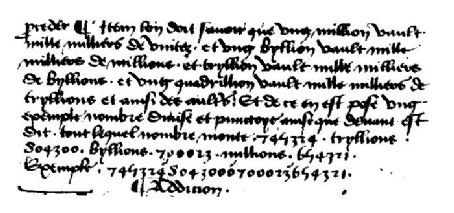 preder ¶ Item lon doit savoir que ung million vault
mille milliers de unitez · et ung byllion vault mille
milliers de millions · et tryllion vault mille milliers
de byllions · et ung quadrillion vault mille milliers de
tryllions et ainsi des aultres · Et de ce en est pose ung
exemple nombre divise et punctoye ainsi que devant est
dit · tout lequel nombre monte · 745324 · tryllions
804300 · byllions · 700023 · millions · 654321 ·
Exemple · 7453248043000700023654321 ·
¶ Addicion ·